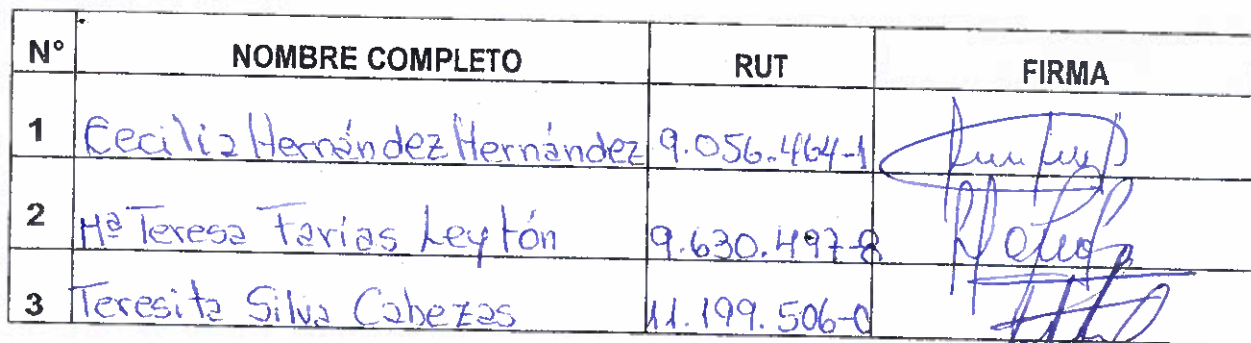 N° NOMBRE COMPLETO RUT FIRMA
1 Cecilia Hernández Hernández 9.056.464-1
2 Mª Teresa Farías Leytón 9.630.497-8
3 Teresita Silva Cabezas 11.199.506-0